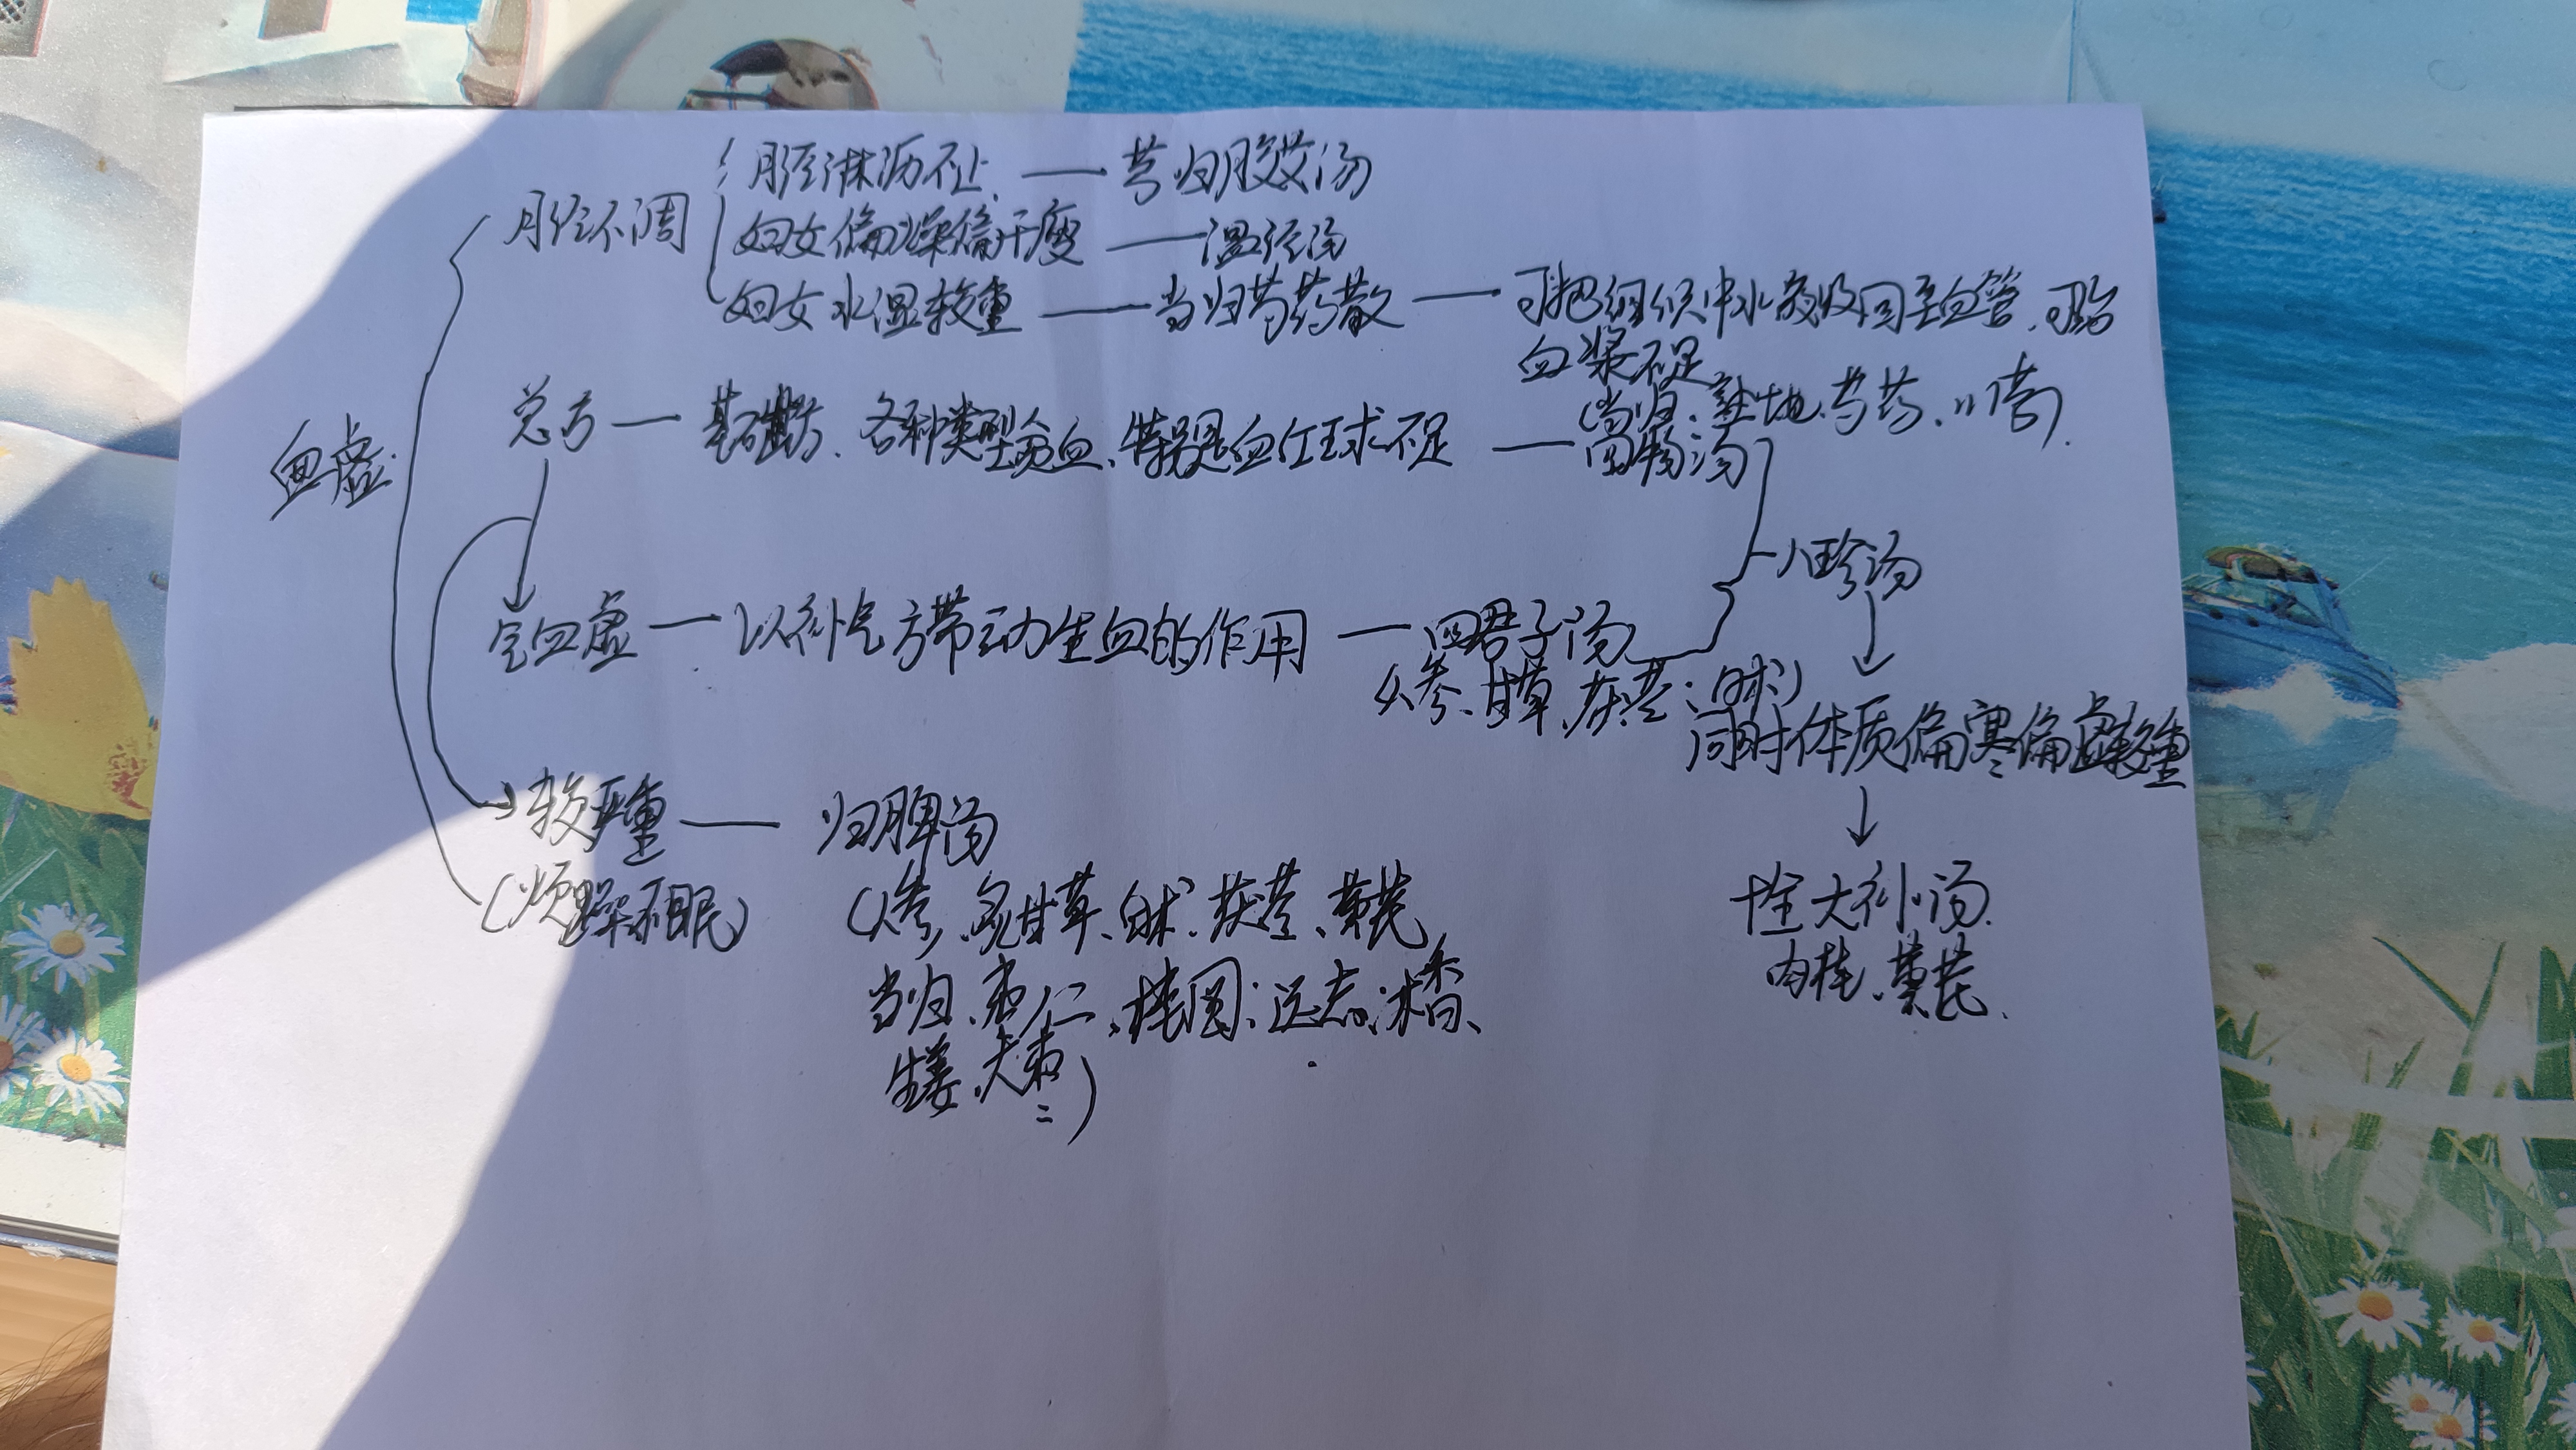 血虚
月经不调
月经淋沥不止 — 芎归胶艾汤
妇女偏燥偏干瘦 — 温经汤
妇女水湿较重 — 当归芍药散 — 可把组织中水分收回至血管，可治
血浆不足
总方 — 基础方、各种类型贫血、特别是血红球不足 — 四物汤
(当归、熟地、芍药、川芎)
八珍汤
气血虚 — 以补气方带动生血的作用 — 四君子汤
(人参、甘草、茯苓、白术)
同时体质偏寒偏虚较重
较严重 — 归脾汤
(烦躁不眠)
(人参、炙甘草、白术、茯苓、黄芪
当归、枣仁、桂圆、远志、木香、
生姜、大枣)
十全大补汤
肉桂、黄芪